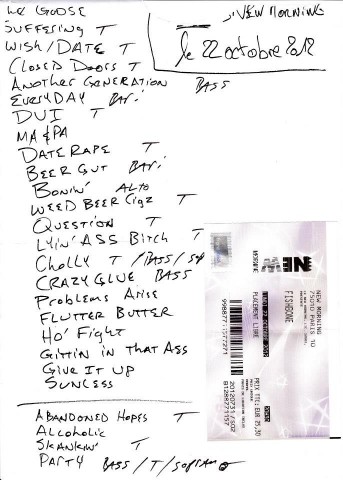 GOOSE
SUFFERING T
WISH/DATE T
CLOSED DOORS T
ANOTHER GENERATION BASS
EVERYDAY Bari
DUI T
MA & PA
DATE RAPE T
BEER GUT Bari
BONIN' ALTO
WEED BEER CIGZ T
QUESTION T
LYIN' ASS BITCH T
CHOLLY T / BASS / SOP
CRAZY GLUE BASS
PROBLEMS ARISE
FLUTTER BUTTER
HO' FIGHT
GITTIN IN THAT ASS
GIVE IT UP
SUNLESS
ABANDONED HOPES T
ALCOHOLIC
SKANKIN' T
PARTY BASS/T/SOPRANO
NEW MORNING
le 22 octobre 2012
NEW MORNING
75010 PARIS 10
FISHBONE
PLACEMENT LIBRE
PRIX TTC: EUR 25,30
NEW
MORNING